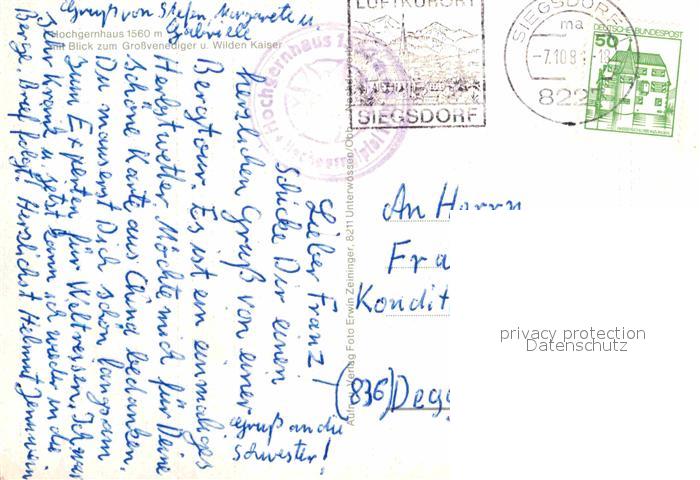 Gruß von Stefan, Margarete u.
Gabriele
Hochgernhaus 1560 m
mit Blick zum Großvenediger u. Wilden Kaiser
Lieber Franz!
Schicke Dir einen
herzlichen Gruß von einer
Bergtour. Es ist ein einmaliges
Herbstwetter. Möchte mich für Deine
schöne Karte aus China bedanken.
Du mauserst Dich schön langsam
zum Experten für Weltreisen. Ich war
sehr krank u. jetzt kann ich wieder in die
Berge. Brief folgt! Herzlichst Helmut
Gruß an die
Schwester!
Hochgernhaus
LUFTKURORT
SIEGSDORF
SIEGSDORF
ma
-7.10.8 -18
8227
DEUTSCHE BUNDESPOST
50
Verlag Foto Erwin Zeininger, 8211 Unterwössen/Obb.
An Herrn
Fra
Kondit
(836) Degg
privacy protection
Datenschutz